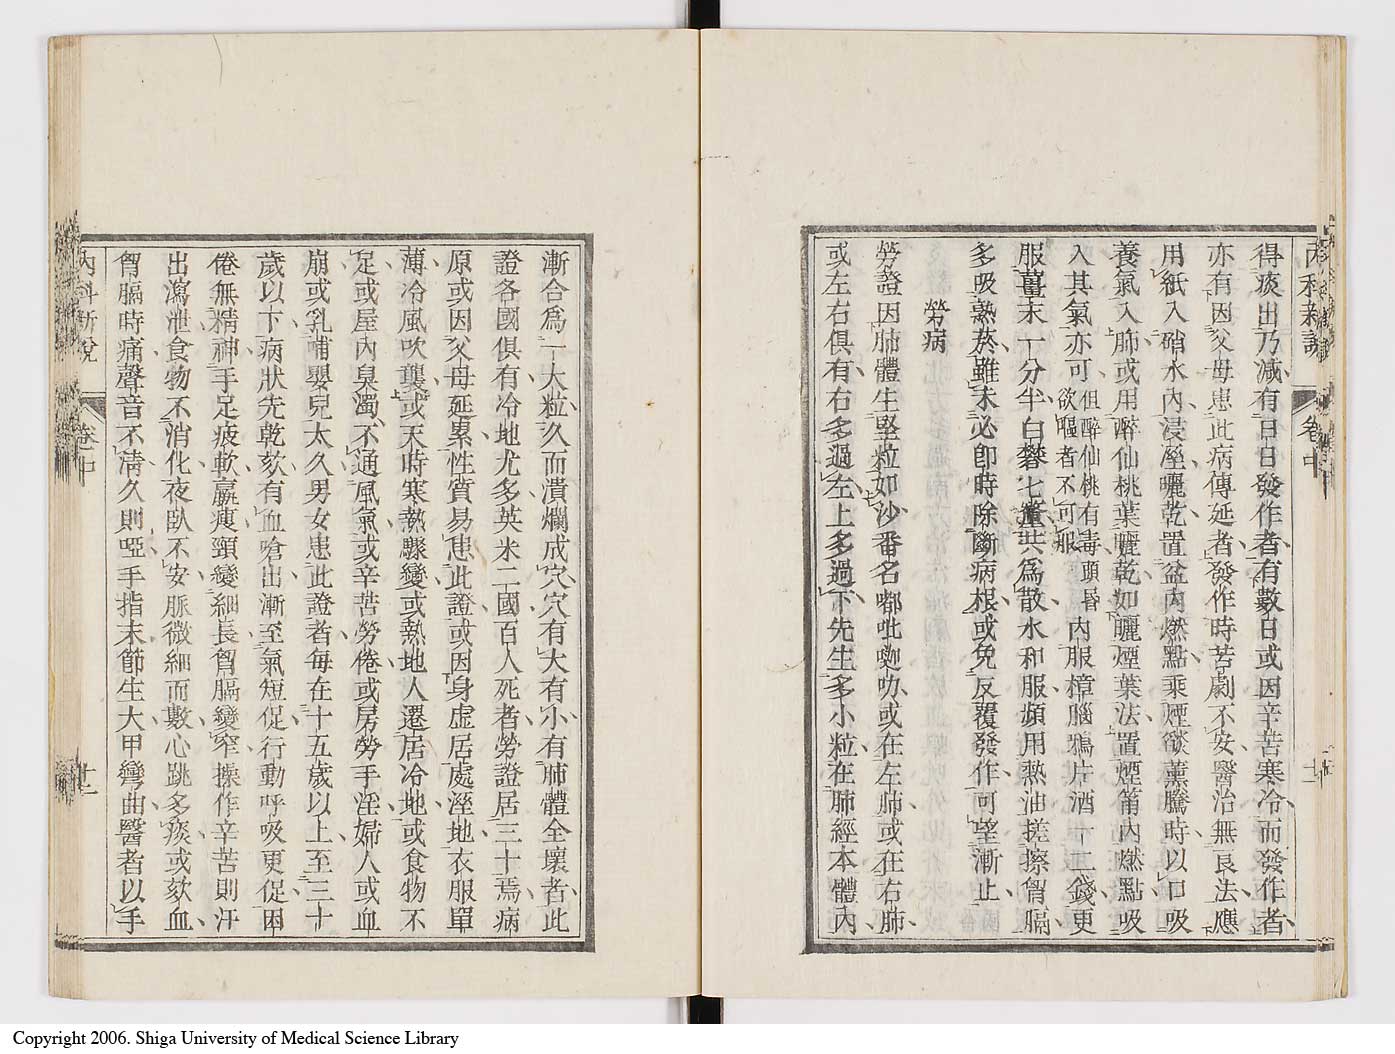 內科新說 卷中
得痰出乃減有日日發作者有數日或因辛苦寒冷而發作者
亦有因父母患此病傳延者發作時苦劇不安醫治無良法應
用紙入硝水內浸溼曬乾置盆內燃點乘煙燄薰騰時以口吸
養氣入肺或用醉仙桃葉曬乾如曬煙葉法置煙筩內燃點吸
入其氣亦可但醉仙桃有毒頭暈欲嘔者不可服內服樟腦鴉片酒十二錢更
服薑末一分半白礬七釐共為散水和服頻用熱油搓擦胷膈
多吸熱菸雖未必即時除斷病根或免反覆發作可望漸止
勞病
勞證因肺體生堅粒如沙番名嘟吡嘞叻或在左肺或在右肺
或左右俱有右多過左上多過下先生多小粒在肺經本體內
漸合為一大粒久而潰爛成穴穴有大有小有肺體全壞者此
證各國俱有冷地尤多英米二國百人死者勞證居三十焉病
原或因父母延累性質易患此證或因身虛居處溼地衣服單
薄冷風吹襲或天時寒熱驟變或熱地人還居冷地或食物不
足或屋內臭濁不通風氣或辛苦勞倦或房勞手淫婦人或血
崩或乳哺嬰兒太久男女患此證者每在十五歲以上至三十
歲以下病狀先乾欬有血嗆出漸至氣短促行動呼吸更促困
倦無精神手足疲軟羸瘦頸變細長胷膈變窄操作辛苦則汗
出瀉泄食物不消化夜臥不安脈微細而數心跳多痰或欬血
胷膈時痛聲音不淸久則啞手指末節生大甲彎曲醫者以手
內科新說 卷中
Copyright 2006. Shiga University of Medical Science Library